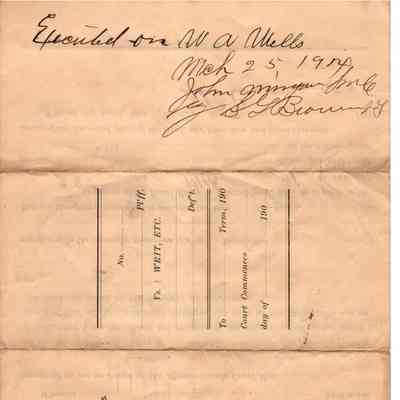 Executed on W A Wells
Mch 25, 1914
John
By S L Brown
No.
Pl'ff.
Vs. } WRIT, ETC.
Def't.
To Term, 190
Court Commences
day of 190